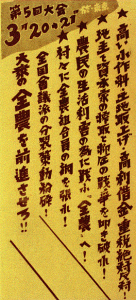 第5回大会
3月20・21
於・東京
★高い小作料、土地取上げ、高利借金、重税絶対反対!
★地主と資本家の搾取、掠奪の戦争を叩き破れ!
★農民の生活利害の為に戦ふ「全農」へ!
★村々に全農組合員の網を張れ!
全国会議派の分裂策動粉砕!
大衆的全農を前進させろ!!